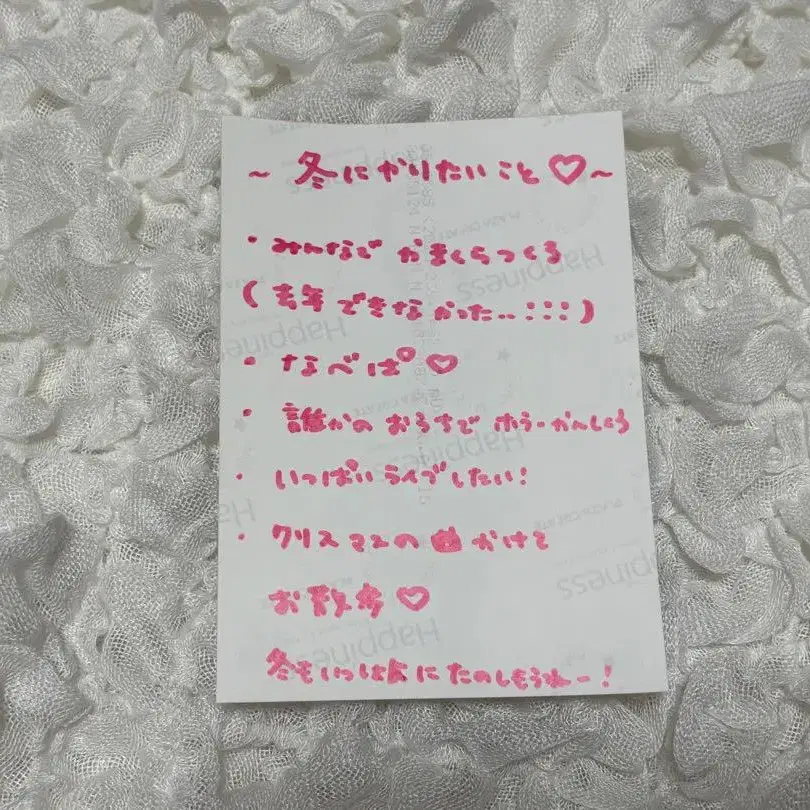 ~ 冬にやりたいこと♡~
・みんなで かまくらつくる
(去年できなかった..:::)
・なべぱ♡
・誰かの おうちで ホラーかんしょう
・いっぱい ライブしたい!
・クリスマスの かけて
お散歩♡
冬もいっしょに たのしもうねー!
Happiness
Happiness
Happiness
Happiness
Happiness
Happiness
PLAZA CREATE